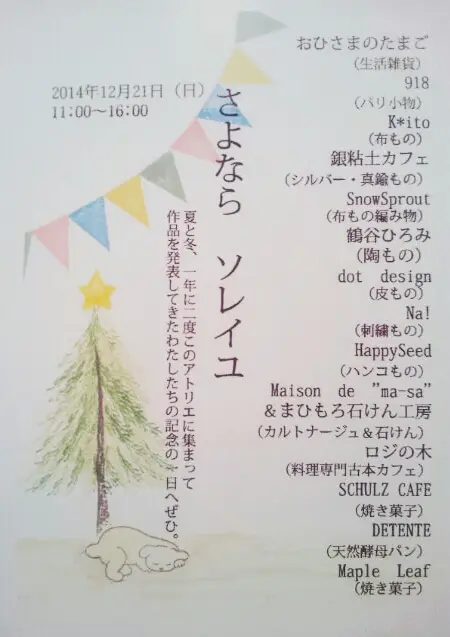 2014年12月21日（日）
11:00～16:00
さよなら　ソレイユ
夏と冬、一年に二度このアトリエに集まって
作品を発表してきたわたしたちの記念の一日へぜひ。
おひさまのたまご
（生活雑貨）
918
（パリ小物）
K*ito
（布もの）
銀粘土カフェ
（シルバー・真鍮もの）
SnowSprout
（布もの編み物）
鶴谷ひろみ
（陶もの）
dot design
（皮もの）
Na!
（刺繍もの）
HappySeed
（ハンコもの）
Maison de ”ma-sa”
＆まひもろ石けん工房
（カルトナージュ＆石けん）
ロジの木
（料理専門古本カフェ）
SCHULZ CAFE
（焼き菓子）
DETENTE
（天然酵母パン）
Maple Leaf
（焼き菓子）